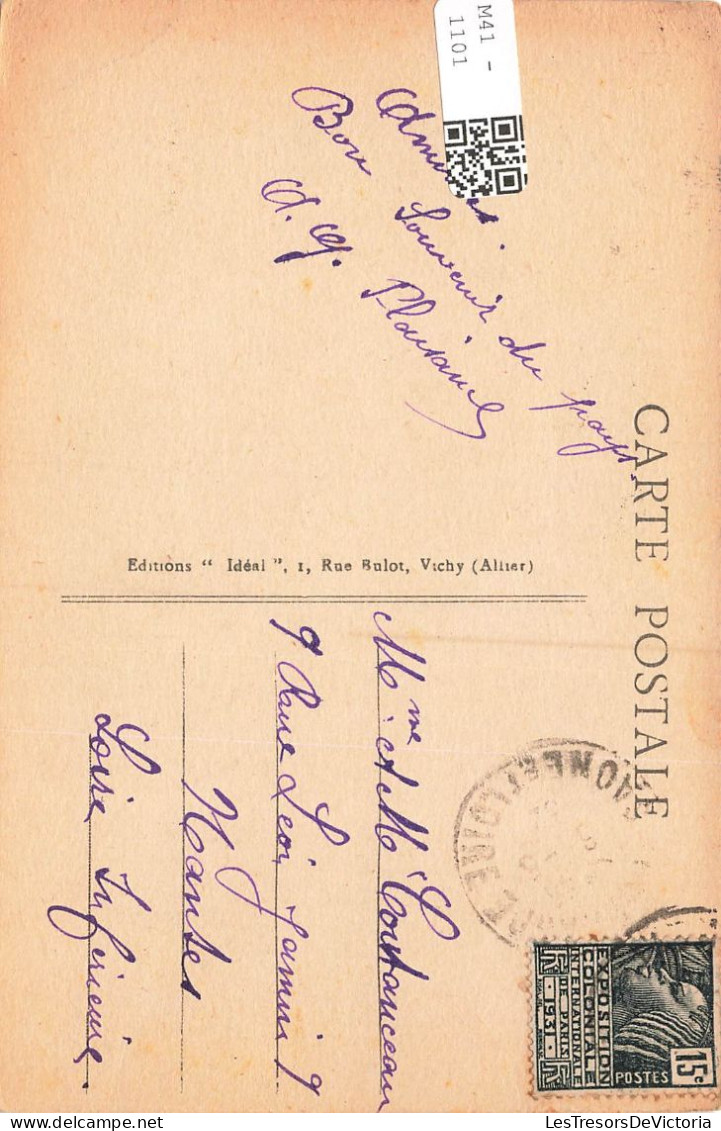 CARTE POSTALE
M41 -
1101
Bon Souvenir du pays.
Editions “ Idéal ”, 1, Rue Bulot, Vichy (Allier)
Mme et M Coutanceau
9 Rue Léon Jamin 9
Nantes
Loire Inférieure.
EXPOSITION
COLONIALE
INTERNATIONALE
DE PARIS
1931
POSTES
15c
LesTresorsDeVictoria@Delcampe.net